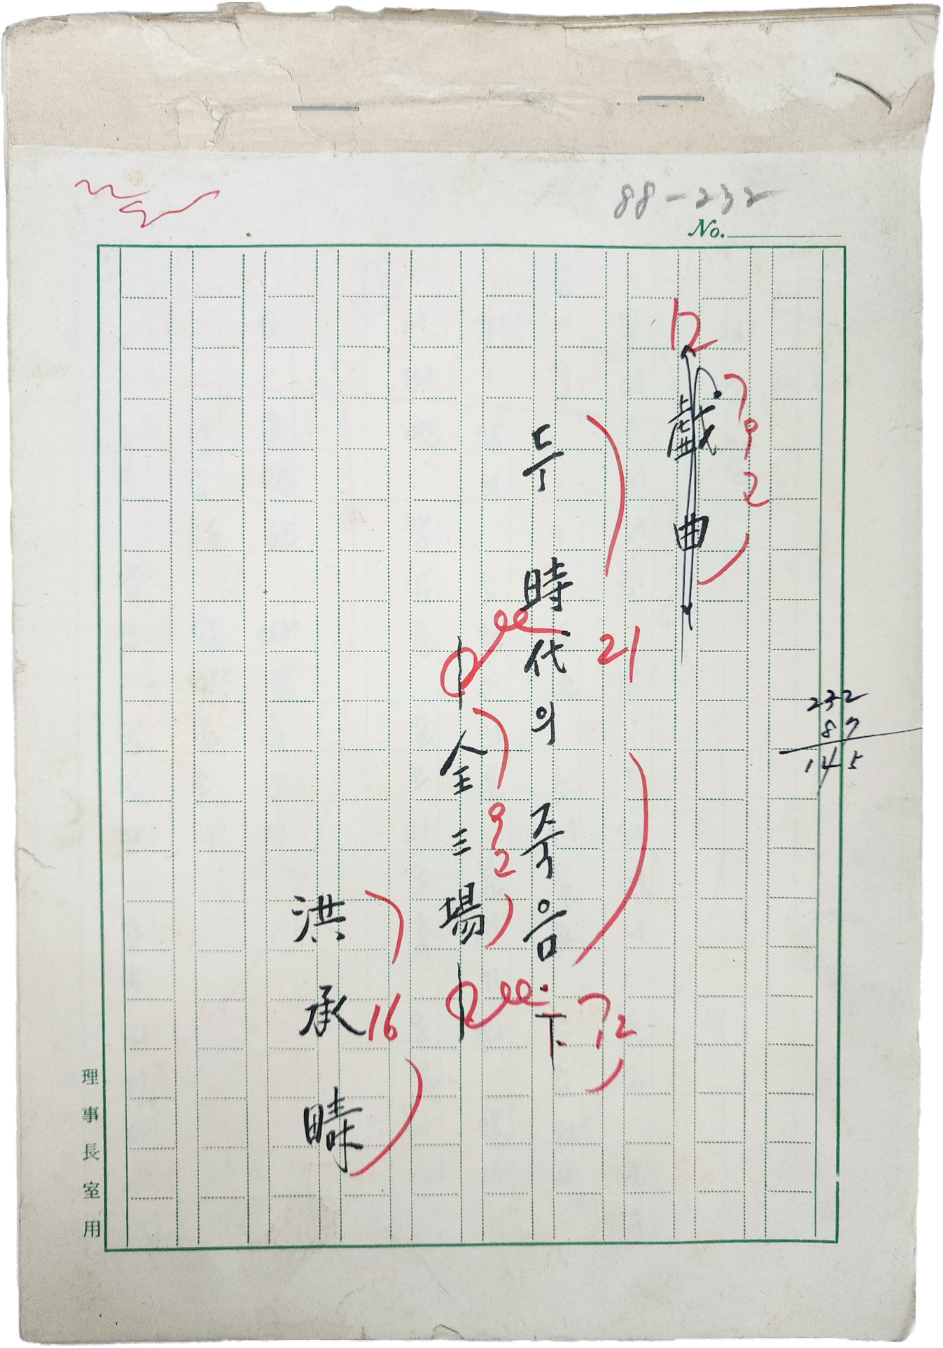 88-232
No.
12
戱曲
92
두 時代의 죽음 下
21
12
全三場
92
洪承疇
16
232
87
145
理事長室用